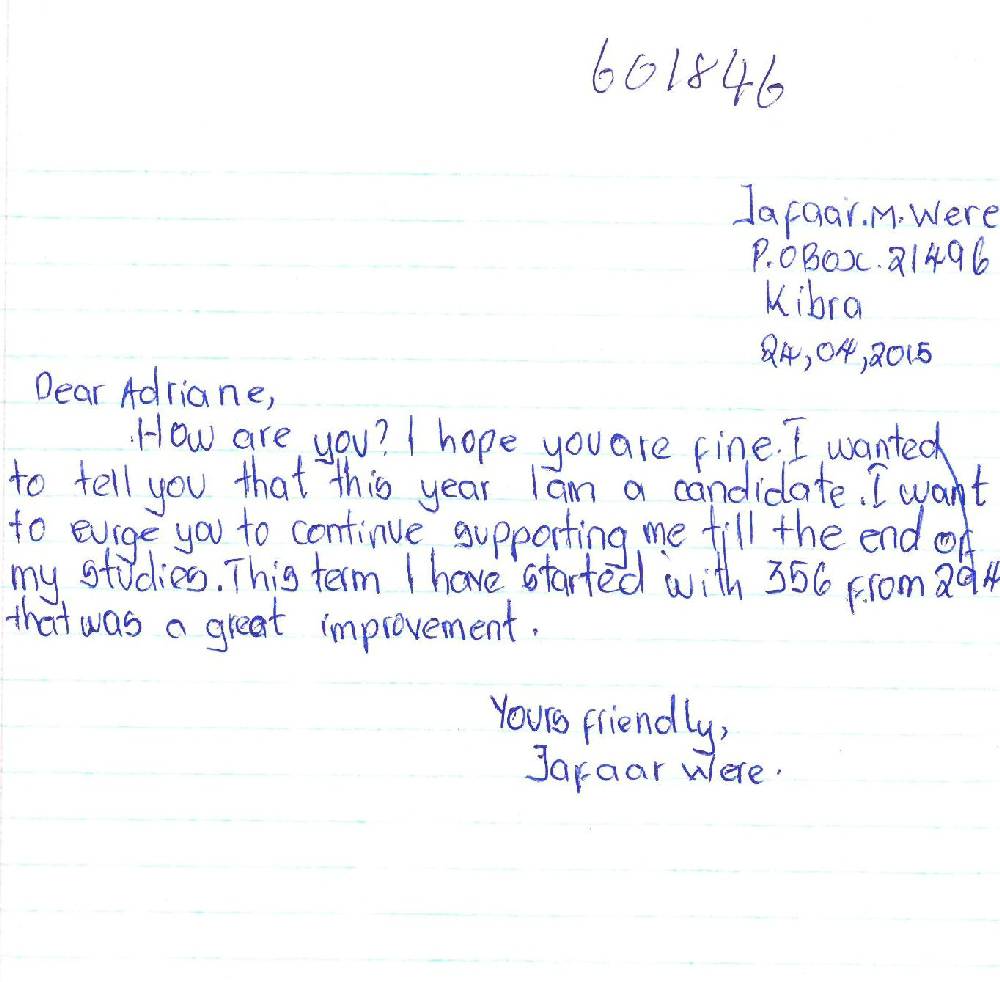 601846
Jafaar.M.Were
P.O Box.21496
Kibra
24,04,2015
Dear Adriane,
How are you? I hope you are fine. I wanted
to tell you that this year I am a candidate. I want
to eurge you to continue supporting me till the end of
my studies. This term I have started with 356 from 294
that was a great improvement.
Yours friendly,
Jafaar Were.